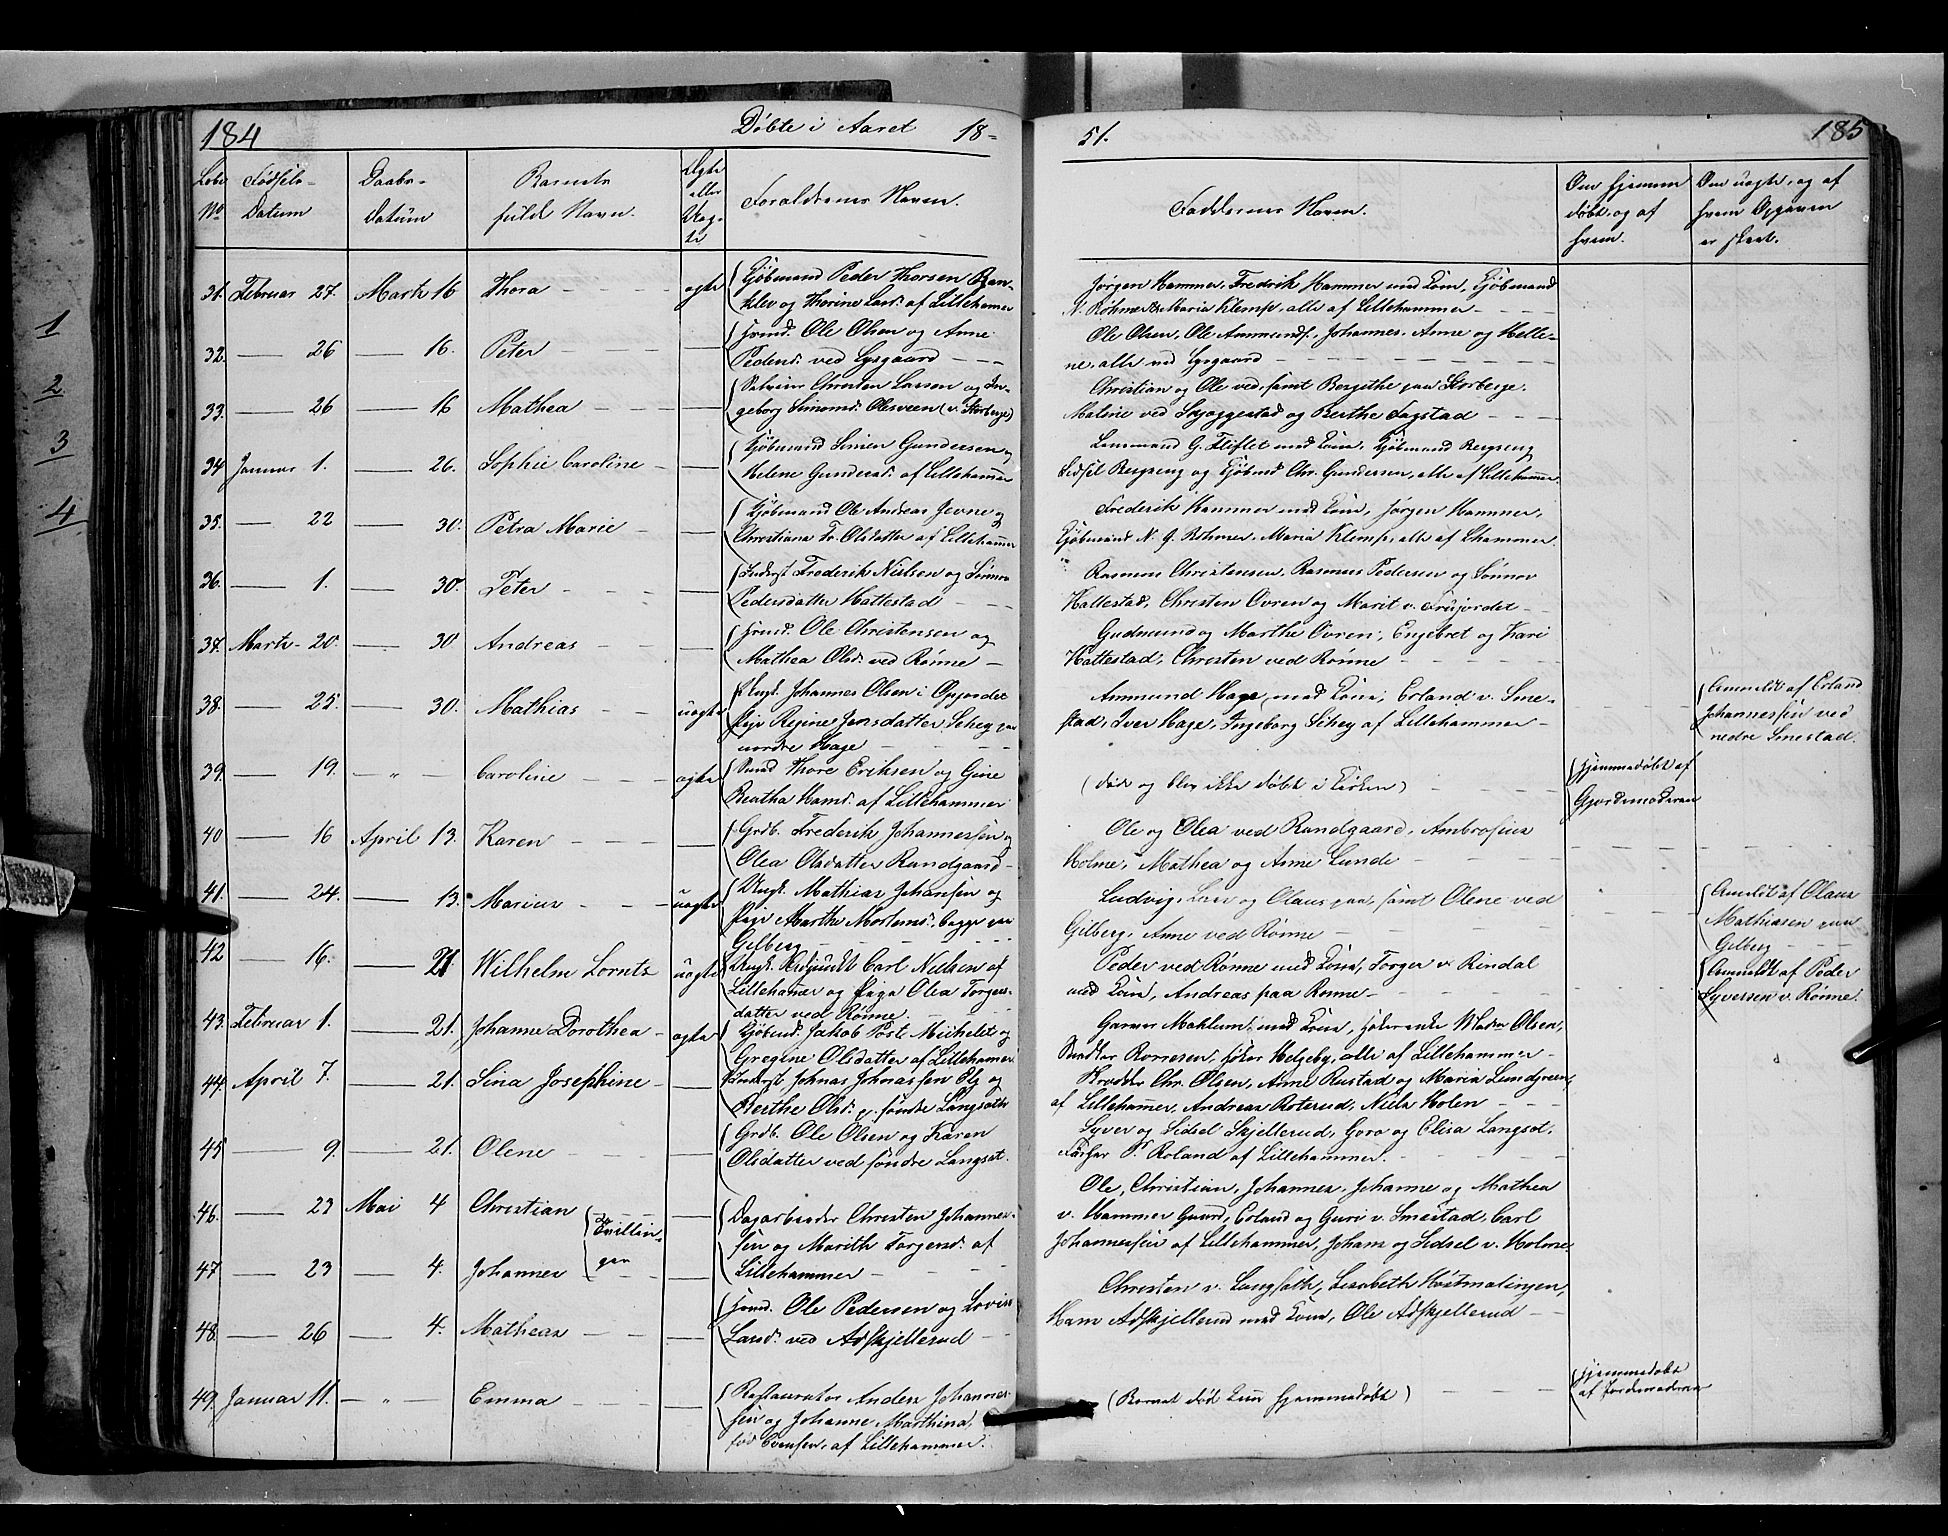 184
Døbte i Aaret 18-
51.
185
Løbe No
Fødsels- Datum
Daabs- Datum
Barnets fulde Navn.
Ægte eller Uægte
Forældrenes Navne.
Faddernes Navne.
Om hjemmedøbt, og af hvem.
Om uægte, og af hvem Opgaven er skeet.
1
2
3
4
31. Februar 27. Marts 16 Thora - - - ægte Kjøbmand Peder Thorsen Ban-
klev og Thorine Larsd. af Lillehamer
Jørgen Hammer, Fredrik Hammer med Kone, Kjøbmand
N. Røhmer & Maria Klemp, alle af Lillehammer
32. — 26 — 16. Peter - - - — Huusmd. Ole Olsen og Anne
Pedersd. ved Lysgaard - - -
Ole Olsen, Ole Ammunds., Johannes, Anne og Helle-
ne, alle ved Lysgaard
33. — 26 — 16 Mathea - - - — Christen Larsen og In-
geborg Simensd. Olesveen (v. Storberge)
Christian og Ole ved, samt Borgithe paa Storberge.
Matine ved Skjoggestad og Berthe Fagstad - - -
34 Januar 1. — 26. Sophie Caroline - — Kjøbmand Simen Gundersen og
Helene Gundersd. af Lillehammer
Lensmand G. Fliflet med Kone, Kjøbmand Bergseng
Sidsel Bergseng og Kjøbmd. Chr. Gundersen, alle af Lillehammer.
35. — 22 — 30. Petra Marie - — Kjøbmand Ole Andreas Jevne og
Christiane Fr. Olsdatter af Lillehammer
Frederik Hammer med Kone, Jørgen Hammer,
Kjøbmand N. J. Røhmer, Maria Klemp, alle af Lhammer.
36. — 1. — 30. Peter - - - — Inderst Frederik Nielsen og Sønnov
Pedersdatter Hattestad - - -
Rasmus Christensen, Rasmus Pedersen og Sønnov
Hattestad, Christen Ovren og Marit v. Trujordet
37. Marts 20. — 30 Andreas - - — Huusmd. Ole Christensen og
Mathea Olsd. ved Rønne -
Gudmund og Marthe Ovren, Engebret og Kari
Hattestad, Christen ved Rønne - - -
38. — 25. — 30. Mathias - - uægte Ungk. Johannes Olsen i Opjordet
Pige Regine Jensdatter Sehey paa
nordre Hage - - -
Ammund Hage med Kone, Erland v. Sme-
stad, Iver Hage, Ingeborg Sehey af Lillehammer -
Anmeldt af Erland
Johannessen ved
nedre Smestad.
39. — 19. — „ — Caroline - - - ægte Smed Thore Eriksen og Gine
Beatha Hansd. af Lillehammer
(død og blev ikke døbt i Kirken)
Hjemmedøbt af
Gjordemoderen
40 — 16 April 13. Karen - - - — Grdb. Frederik Johannessen og
Olea Olsdatter Rundgaard -
Ole og Olea ved Rundgaard, Ambrosius
Holme, Mathea og Anne Lunde
41. — 24. — 13. Marius - - - uægte Ungk. Mathias Johansen og
Pige Marthe Mortensd., begge paa
Gilberg - - -
Ludvig, Lars og Olaus paa, samt Olene ved
Gilberg, Anne ved Rønne -
Anmeldt af Olaus
Mathiesen paa
Gilberg
42 — 16. — 21 Wilhelm Lorntz uægte Ungk. Carl Nielsen af
Lillehamer og Pige Olea Torgers-
datter ved Rønne.
Peder ved Rønne med Kone, Torger v. Rindal
med Kone, Andreas paa Rønne -
Anmeldt af Peder
Syversen v. Rønne.
43. Februar 1. — 21. Johanne Dorothea - ægte Kjøbmd. Jakob Post Michelet og
Gregine Olsdatter af Lillehamer
Garver Mæhlum, med Kone, Olsen,
Romesen, Helgeby, alle af Lillehammer -
44. April 7. — 21. Lina Josephine - — Inderst Johnas Johnassen Elg og
Berthe Olsd. p. søndre Langsæth
Skrædder Chr. Olsen, Anne Rustad og Maria Lundgreen,
af Lillehammer, Andreas Roterud, Niels Holen - - -
45 — 9. — 21. Olene - - - — Grdb. Ole Olsen og Karen
Olsdatter ved søndre Langsæt.
Syver og Sidsel Skjellerud, Goro og Elisa Langsæt,
Farver P. Roland af Lillehammer.
46. — 23 Mai 4 Christian Tvillin- — Dagarbeider Christen Johannes-
sen og Marith Torgersd. af
Ole, Christian, Johannes, Johanne og Mathea
v. Hammer Guurd, Erland og Guri v. Smestad, Carl
47 — 23 — 4. Johannes ger — Lillehammer
Johannessen af Lillehammer, Johans og Sidsel v. Holme
48. — 26 — 4. Matheas - - - — Huusmd. Ole Pedersen og Lovise
Larsd. ved Aaskjellerud
Christen v. Langsæth, Lisabeth Høstmælingen,
Hans Aaskjellerud med Kone, Ole Aaskjellerud
49. Januar 11. — „ — Emma - - - — Restauratør Anders Johannes-
sen og Johanne Marthina,
fød Evensen, af Lillehammer.
(Barnet død kun hjemmedøbt)
Hjemmedøbt
af Jordemoderen